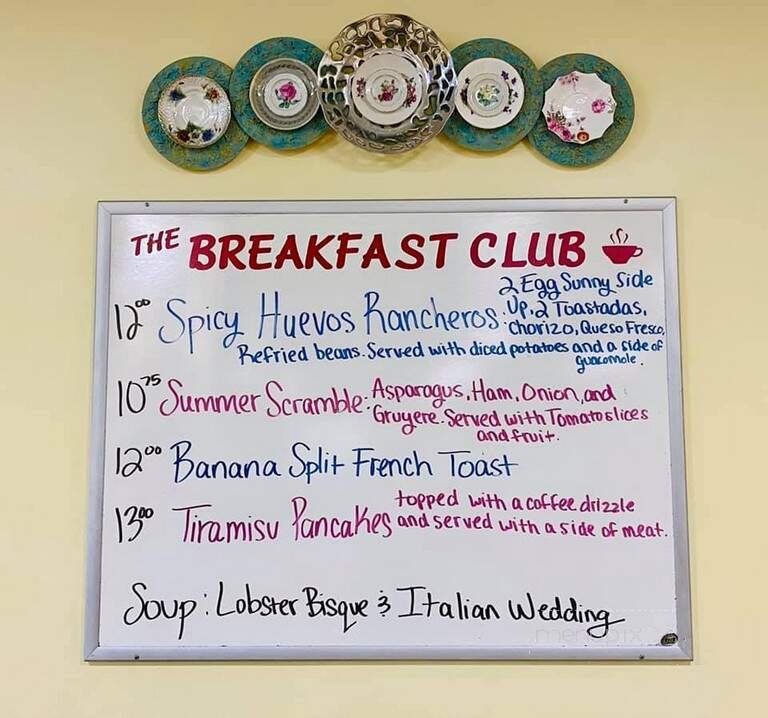 THE BREAKFAST CLUB
12⁰⁰ Spicy Huevos Rancheros: 2 Egg Sunny Side
Up, 2 Toastadas,
Chorizo, Queso Fresco,
Refried beans. Served with diced potatoes and a side of
guacamole.
10⁷⁵ Summer Scramble: Asparagus, Ham, Onion, and
Gruyere. Served with Tomato slices
and fruit.
12⁰⁰ Banana Split French Toast
13⁰⁰ Tiramisu Pancakes topped with a coffee drizzle
and served with a side of meat.
Soup: Lobster Bisque & Italian Wedding
menupix